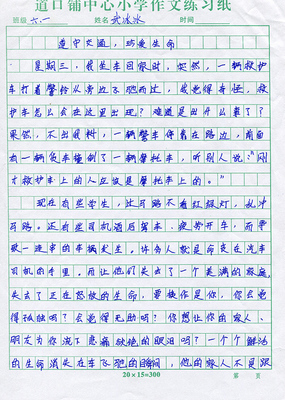 道口铺中心小学作文练习纸
班级 六.一 姓名 武冰冰 时间
遵守交通,珍爱生命
星期三,我坐车回家时,突然,一辆救护
车打着警铃从旁边飞驰而过,我觉得奇怪,救
护车怎么会在这里出现?难道是出什么事了?
果然,不出我料,一辆警车停着在路边,前面
有一辆货车撞倒了一辆摩托车,听别人说:“刚
才救护车上的人应该是摩托车上的。”
现在有些学生,过马路不看红绿灯,乱冲
马路。还有些司机酒后驾车、疲劳开车,而导
致一连串的车祸发生。许多人就是命丧在汽车
司机的手里。而让他们失去了一个美满的家庭,
失去了正在怒放的生命。要换作是你,你会觉
得孤独吗?会觉得无助吗?你想让你的家人、
朋友为你流下悲痛欲绝的眼泪吗?一个个鲜活
的生命消失在车飞驰的瞬间,他的家人不是跟
20×15=300 第 页